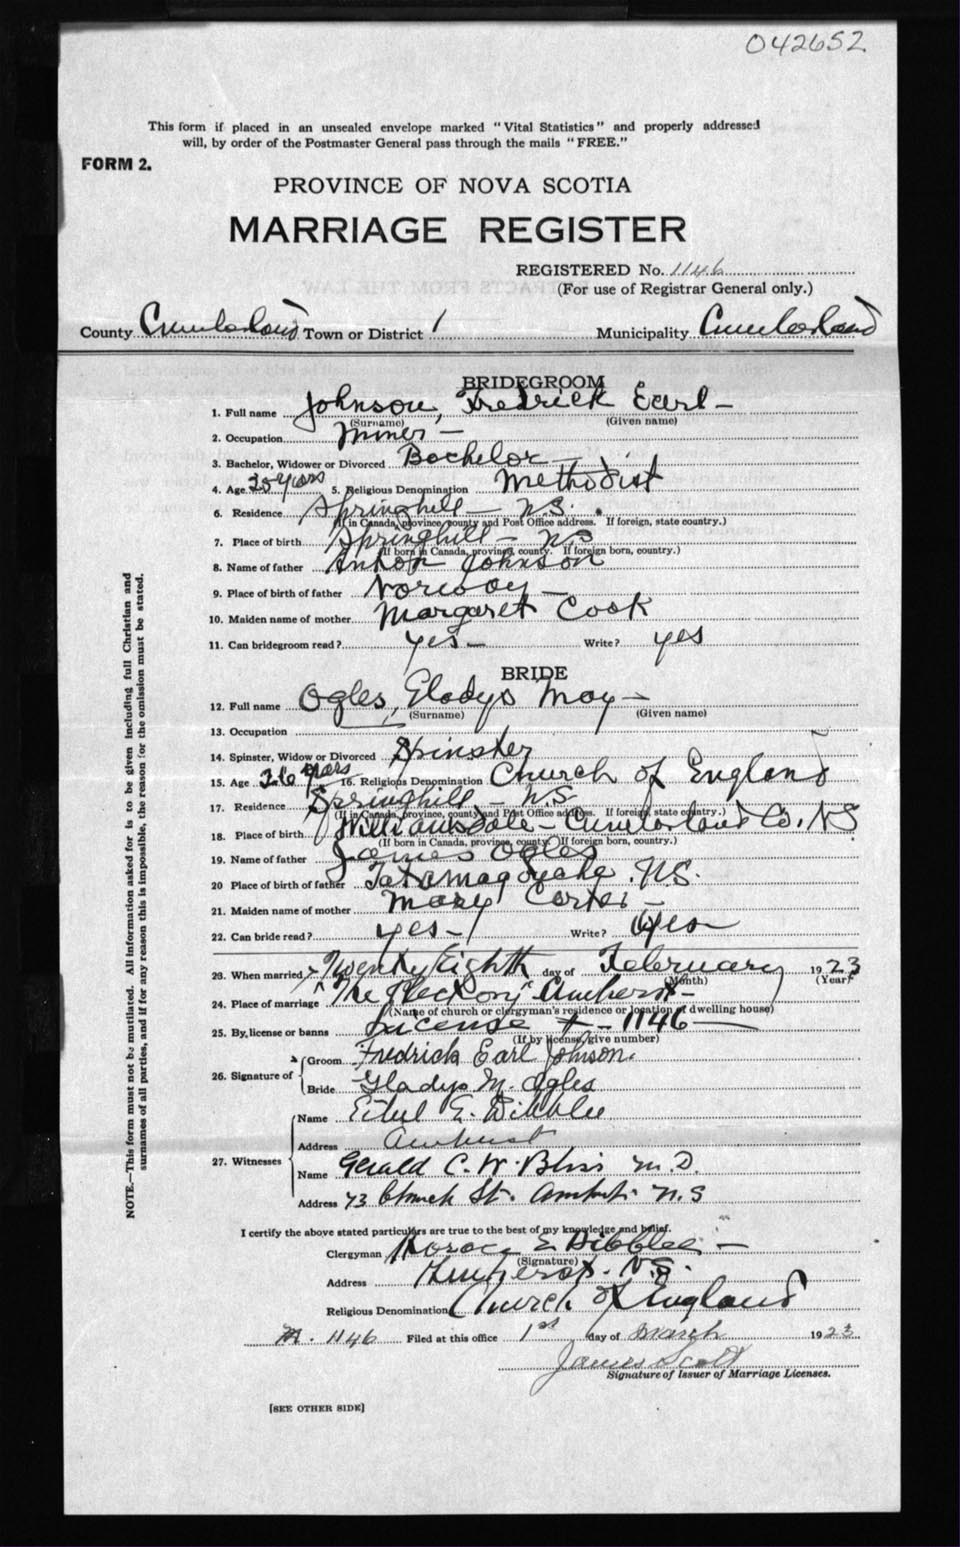 042652
This form if placed in an unsealed envelope marked "Vital Statistics" and properly addressed
will, by order of the Postmaster General pass through the mails "FREE."
FORM 2.
PROVINCE OF NOVA SCOTIA
MARRIAGE REGISTER
REGISTERED No. 1146
(For use of Registrar General only.)
County Cumberland Town or District 1 Municipality Cumberland
BRIDEGROOM
1. Full name Johnson, Fredrick Earl
(Surname) (Given name)
2. Occupation Miner
3. Bachelor, Widower or Divorced Bachelor
4. Age 25 years 5. Religious Denomination Methodist
6. Residence Springhill - N.S.
(If in Canada, province, county and Post Office address. If foreign, state country.)
7. Place of birth Springhill - NS
(If born in Canada, province, county. If foreign born, country.)
8. Name of father Johnson
9. Place of birth of father Norway
10. Maiden name of mother Margaret Cook
11. Can bridegroom read? yes Write? yes
BRIDE
12. Full name Ogles, Gladys May
(Surname) (Given name)
13. Occupation
14. Spinster, Widow or Divorced Spinster
15. Age 26 years 16. Religious Denomination Church of England
17. Residence Springhill - N.S.
(If in Canada, province, county and Post Office address. If foreign, state country.)
18. Place of birth Williamsdale - Cumberland Co. NS
(If born in Canada, province, county. If foreign born, country.)
19. Name of father James Ogles
20 Place of birth of father Tatamagouche N.S.
21. Maiden name of mother Mary Carter
22. Can bride read? yes Write? Yes
23. When married, Twenty Eighth day of February 1923
(Month) (Year)
24. Place of marriage The Rectory Amherst
(Name of church or clergyman's residence or location of dwelling house)
25. By, license or banns License # - 1146
(If by license, give number)
26. Signature of Groom Fredrick Earl Johnson.
Bride Gladys M. Ogles
27. Witnesses Name Ethel E. Dibblee
Address Amherst
Name Gerald C. W. Bliss M.D.
Address 73 Church St. Amherst N.S
I certify the above stated particulars are true to the best of my knowledge and belief.
Clergyman Horace E Dibblee
(Signature)
Address Amherst. N.S.
Religious Denomination Church of England
M. 1146 Filed at this office 1st day of March 1923
James Scott
Signature of Issuer of Marriage Licenses.
[SEE OTHER SIDE]
NOTE.—This form must not be mutilated. All information asked for is to be given including full Christian and
surnames of all parties, and if for any reason this is impossible, the reason for the omission must be stated.